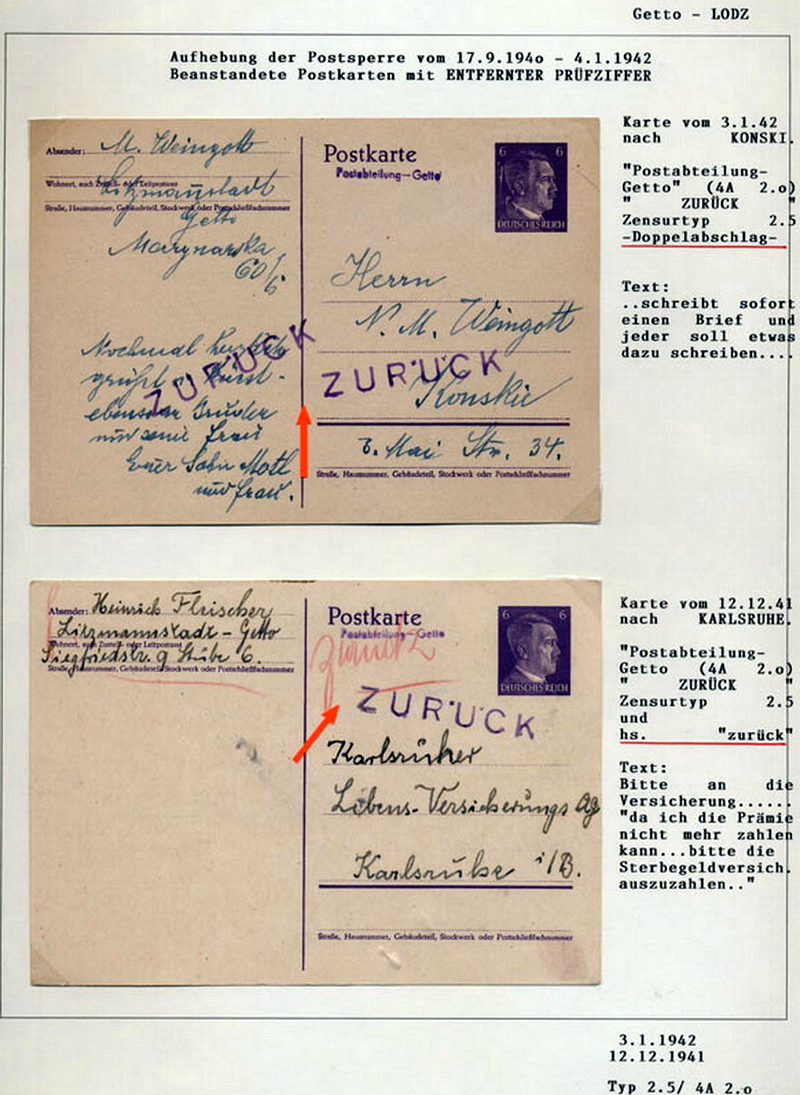 Getto - LODZ
Aufhebung der Postsperre vom 17.9.194o - 4.1.1942
Beanstandete Postkarten mit ENTFERNTER PRÜFZIFFER
Absender: M. Weingott
Wohnort, auch Zustell- oder Leitpostamt
Litzmannstadt
Straße, Hausnummer, Gebäudeteil, Stockwerk oder Postschließfachnummer
Getto
Marynarska
60/6
Nochmal
grüßt
Bruder
und Frau
Euer Sohn Motl
und Frau.
ZURÜCK
Postkarte
Postabteilung-Getto
6 6
DEUTSCHES REICH
Herrn
N. M. Weingott
ZURÜCK
Konskie
3. Mai Str. 34.
Straße, Hausnummer, Gebäudeteil, Stockwerk oder Postschließfachnummer
Karte vom 3.1.42
nach KONSKI.
"Postabteilung-
Getto" (4A 2.o)
" ZURÜCK "
Zensurtyp 2.5
-Doppelabschlag-
Text:
..schreibt sofort
einen Brief und
jeder soll etwas
dazu schreiben....
Absender: Heinrich Fleischer
Litzmannstadt - Getto
Wohnort, auch Zustell- oder Leitpostamt
Siegfriedstr. 9 Stube 6.
Straße, Hausnummer, Gebäudeteil, Stockwerk oder Postschließfachnummer
Postkarte
Postabteilung-Getto
zurück
6 6
DEUTSCHES REICH
ZURÜCK
Karlsruher
Lebens-Versicherungs AG
Karlsruhe i/B.
Straße, Hausnummer, Gebäudeteil, Stockwerk oder Postschließfachnummer
Karte vom 12.12.41
nach KARLSRUHE.
"Postabteilung-
Getto (4A 2.o)
" ZURÜCK "
Zensurtyp 2.5
und
hs. "zurück"
Text:
Bitte an die
Versicherung......
"da ich die Prämie
nicht mehr zahlen
kann...bitte die
Sterbegeldversich.
auszuzahlen.."
3.1.1942
12.12.1941
Typ 2.5/ 4A 2.o